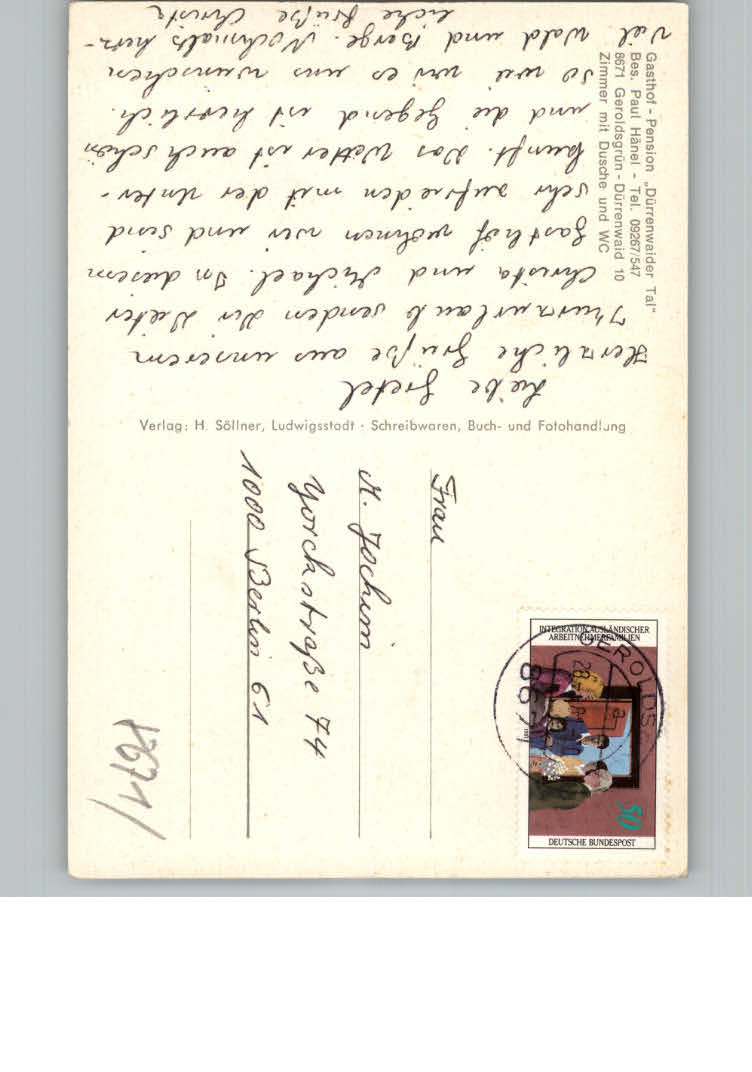 Gasthof - Pension „Dürrenwaider Tal"
Bes. Paul Hänel - Tel. 09267/547
8671 Geroldsgrün - Dürrenwaid 10
Zimmer mit Dusche und WC
Liebe Gretel
Herzliche Grüße aus unserem
Kurzurlaub senden Dir Dieter
Christa und Michael. In diesem
Gasthof wohnen wir und sind
sehr zufrieden mit der Unter-
kunft. Das Wetter ist auch schön
und die Gegend ist herrlich.
so wie wir es uns wünschen
viel Wald und Berge. Nochmals herz-
liche Grüße Christa
Verlag: H. Söllner, Ludwigsstadt · Schreibwaren, Buch- und Fotohandlung
Frau
M. Jochim
Yorckstraße 74
1000 Berlin 61
INTEGRATION AUSLÄNDISCHER
ARBEITNEHMERFAMILIEN
50
DEUTSCHE BUNDESPOST
GEROLDS
8671
a
28